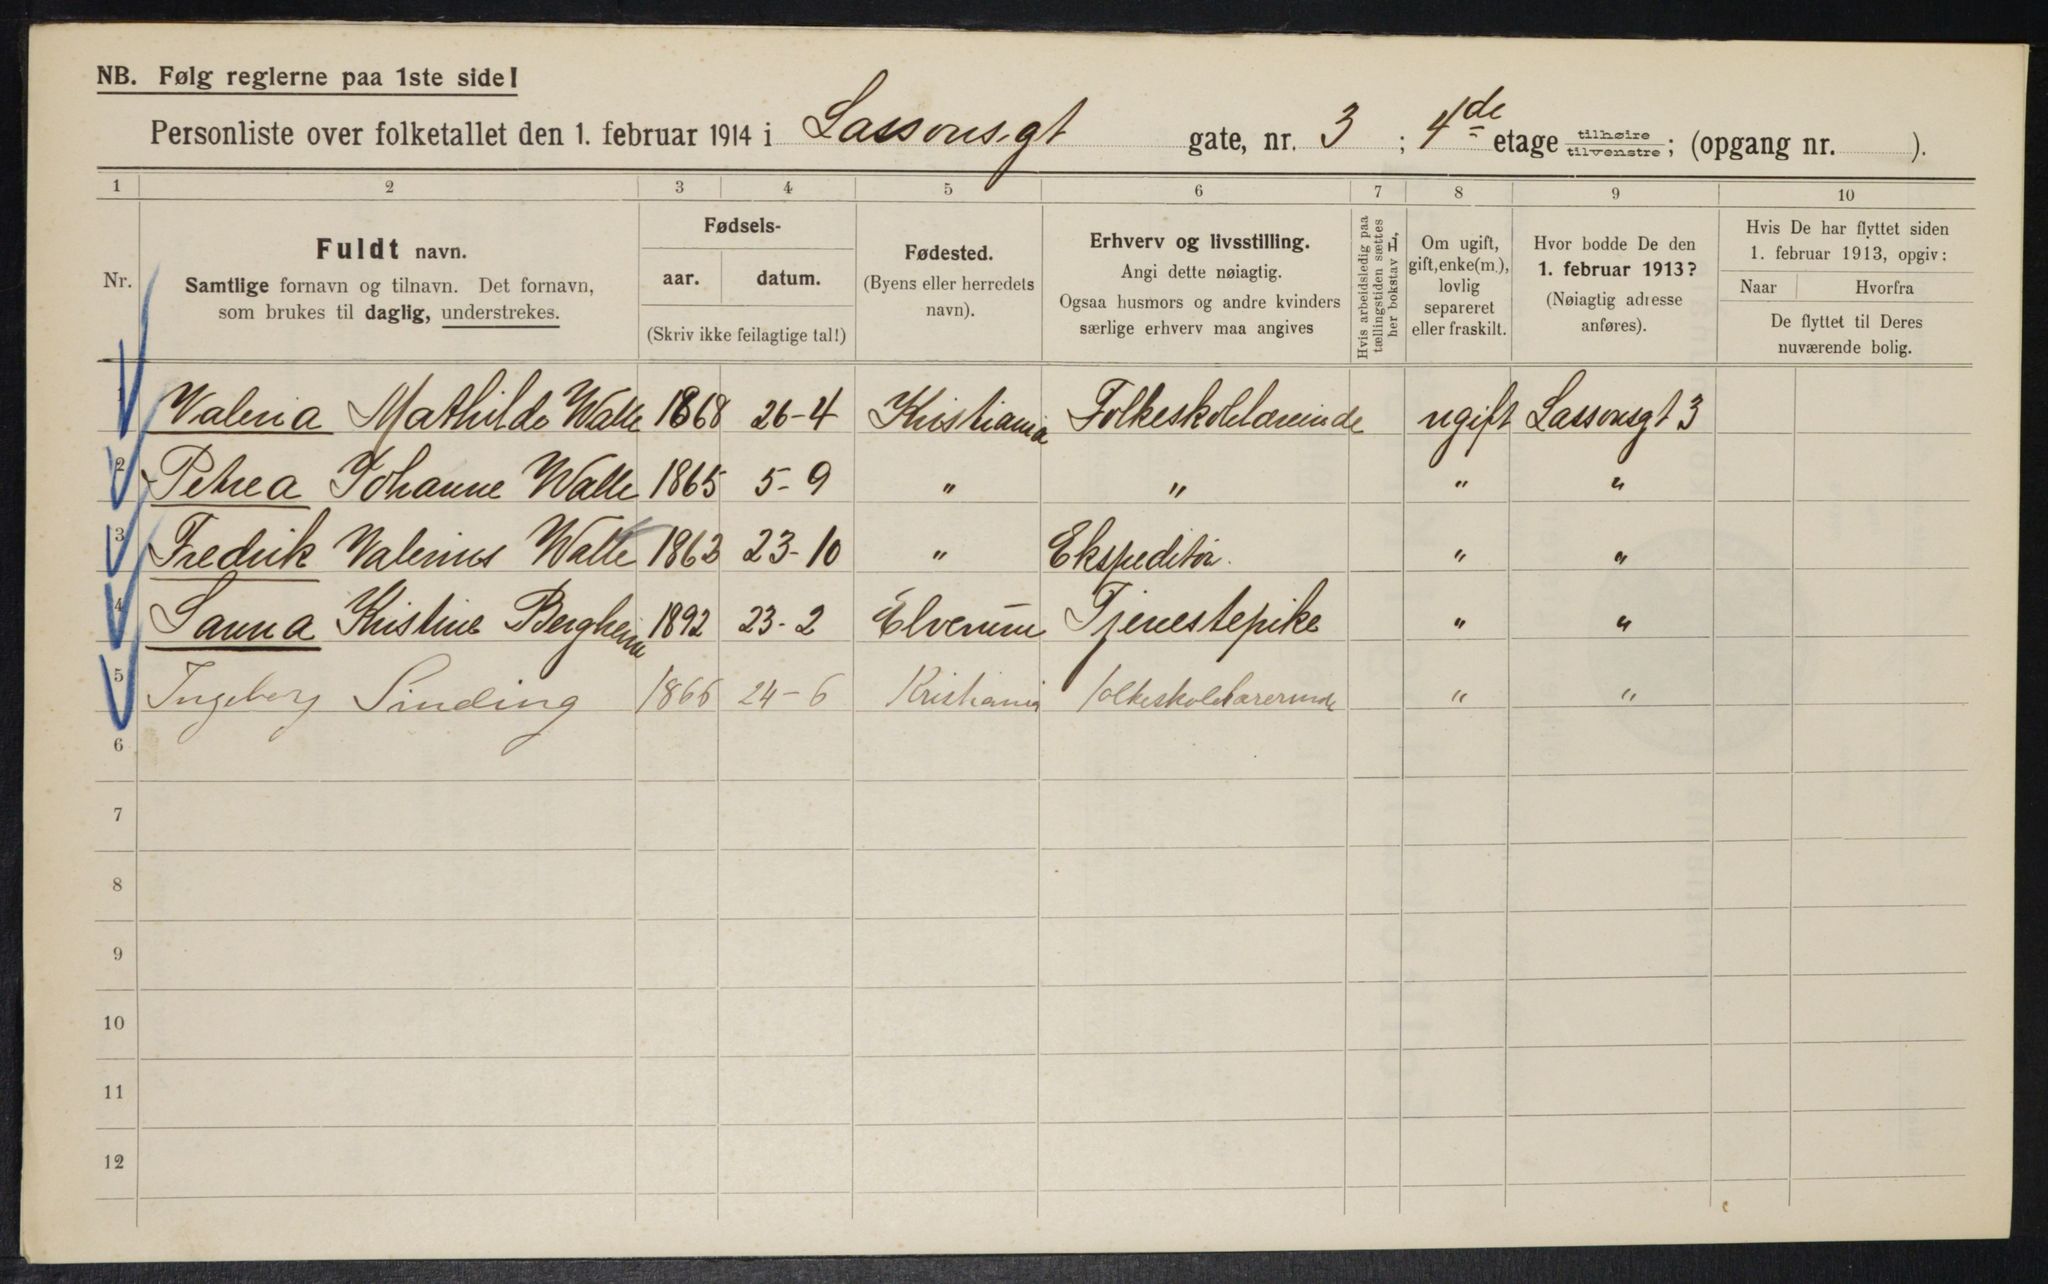 NB. Følg reglerne paa 1ste side!
Personliste over folketallet den 1. februar 1914 i Lassonsgt gate, nr. 3 ; 4de etage tilhøire/tilvenstre; (opgang nr. ).
1 2 3 4 5 6 7 8 9 10
Nr.
Fuldt navn.
Samtlige fornavn og tilnavn. Det fornavn,
som brukes til daglig, understrekes.
Fødsels-
aar. datum.
(Skriv ikke feilagtige tal!)
Fødested.
(Byens eller herredets
navn).
Erhverv og livsstilling.
Angi dette nøiagtig.
Ogsaa husmors og andre kvinders
særlige erhverv maa angives
Hvis arbeidsledig paa
tællingstiden sættes
her bokstav L,
Om ugift,
gift, enke(m.),
lovlig
separeret
eller fraskilt.
Hvor bodde De den
1. februar 1913?
(Nøiagtig adresse
anføres).
Hvis De har flyttet siden
1. februar 1913, opgiv:
Naar Hvorfra
De flyttet til Deres
nuværende bolig.
1 Valeria Mathilde Walle 1868 26-4 Kristiania Folkeskolelærerinde ugift Lassonsgt 3
2 Petrea Johanne Walle 1865 5-9 " " " "
3 Fredrik Valerius Walle 1863 23-10 " Ekspeditør. " "
4 Sanna Kristine Bergheim 1892 23-2 Elverum Tjenestepike " "
5 Ingeborg Sinding 1866 24-6 Kristiania folkeskolelærerinde " "
6
7
8
9
10
11
12